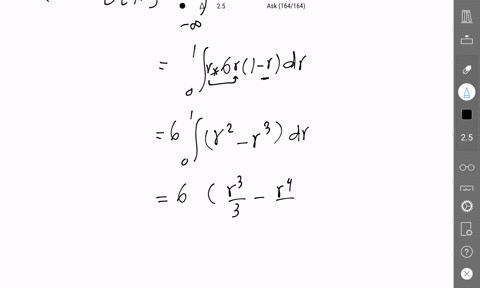 2.5 Ask (164/164)
-∞
= ∫₀¹ r * 6r(1-r) dr
2.5
= 6 ∫₀¹ (r² - r³) dr
= 6 ( r³/3 - r⁴